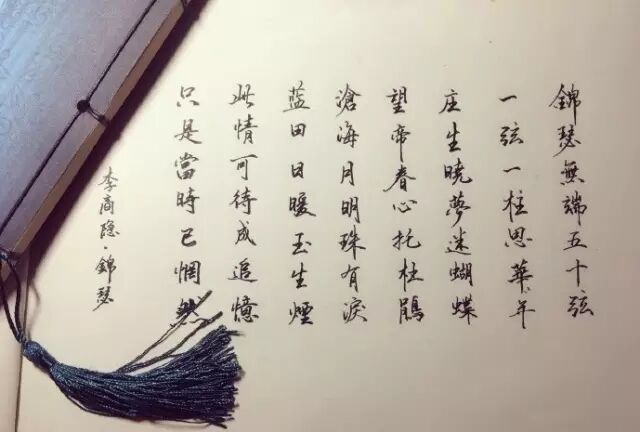 錦瑟無端五十弦
一弦一柱思華年
庄生曉夢迷蝴蝶
望帝春心托杜鵑
滄海月明珠有淚
蓝田日暖玉生煙
此情可待成追憶
只是當時已惘然
李商隐·錦瑟